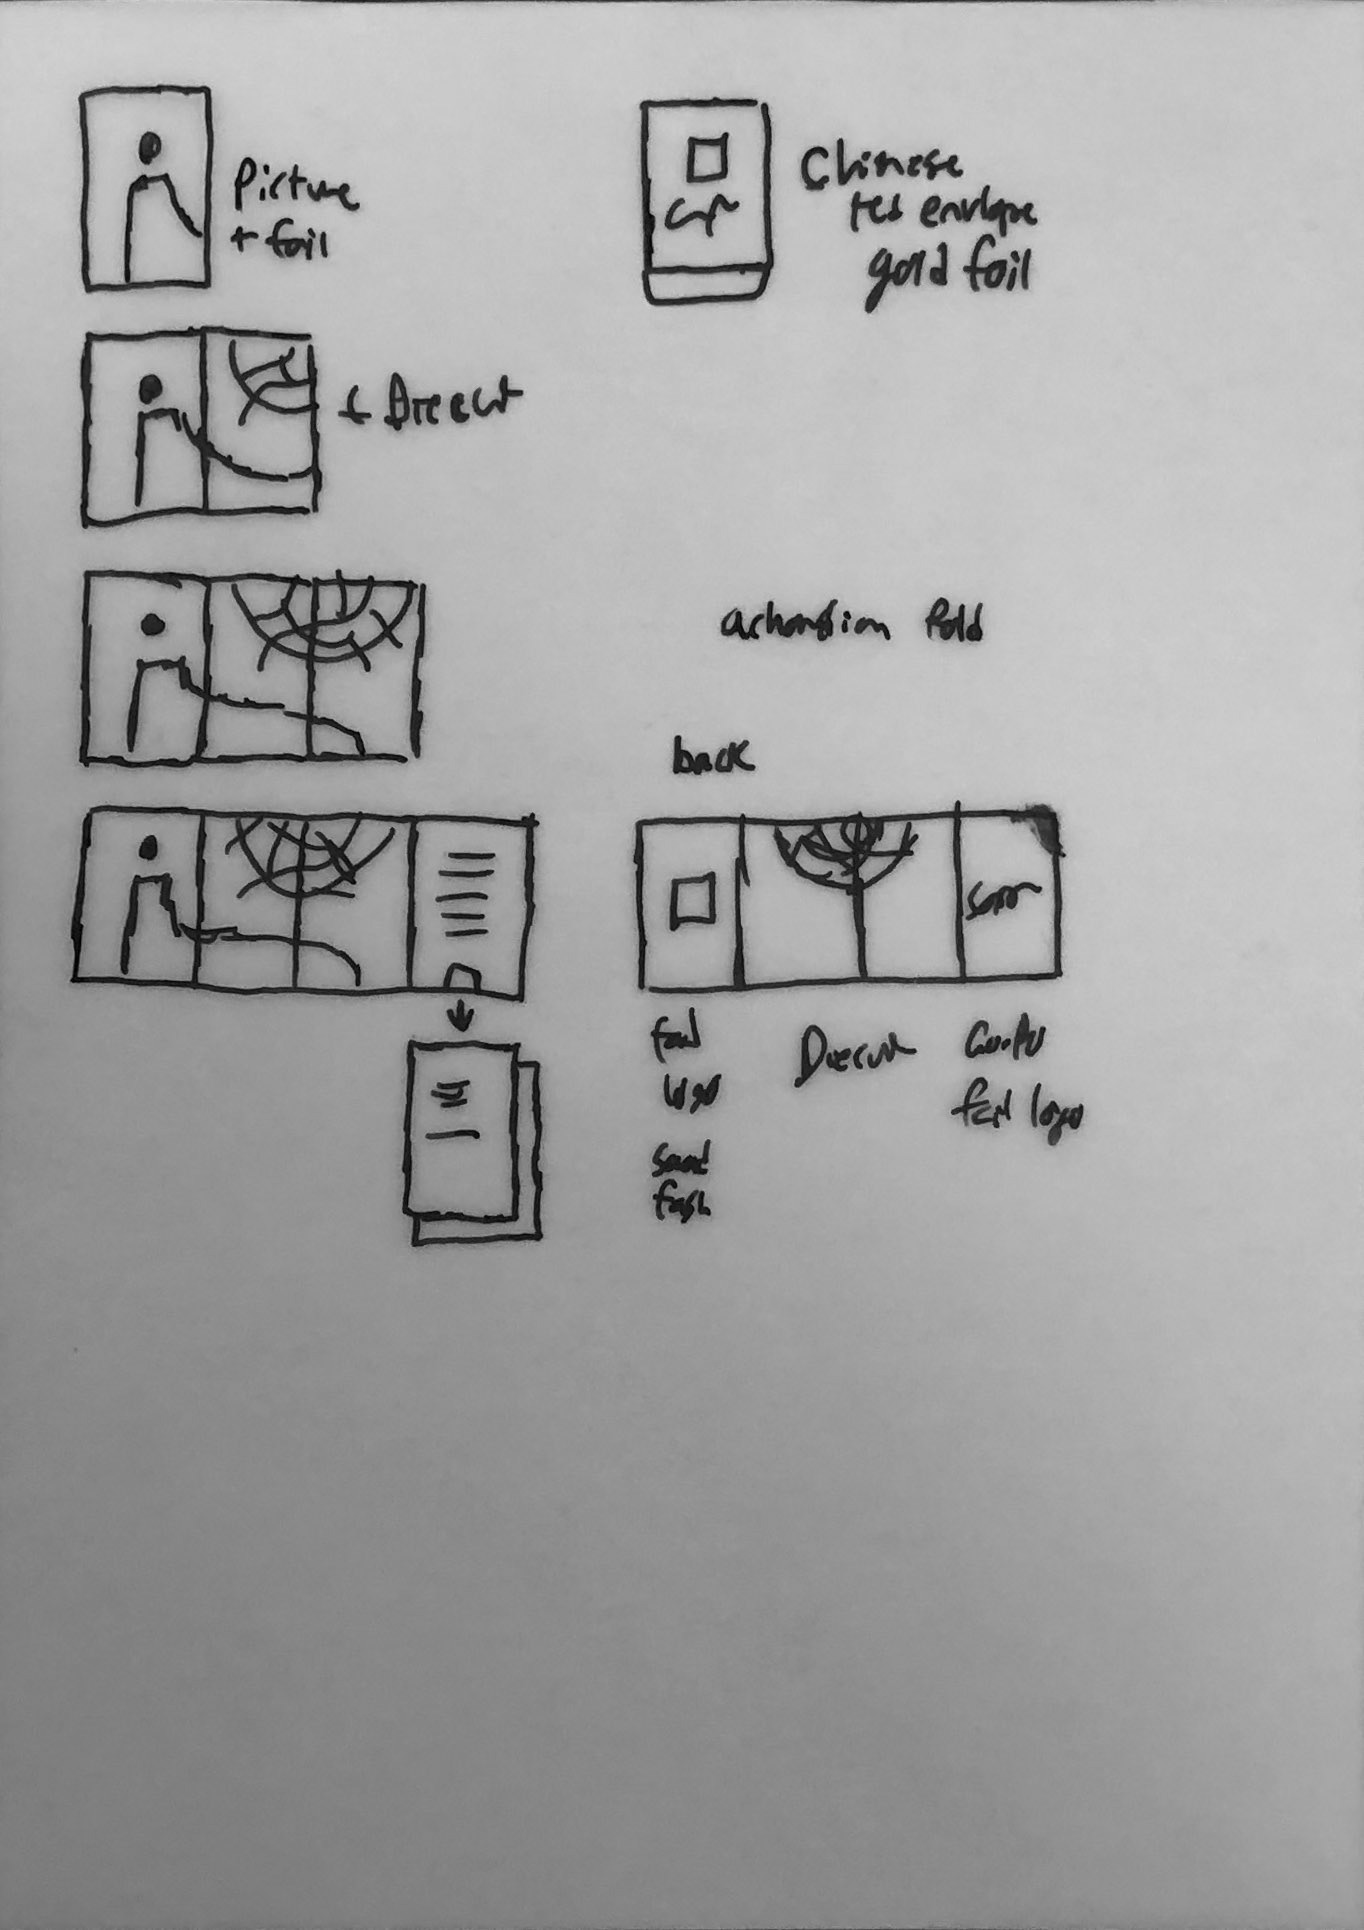 Picture
+ foil
Chinese
red envlope
gold foil
+ Diecut
achordion fold
back
foil
logo
Diecut
foil logo